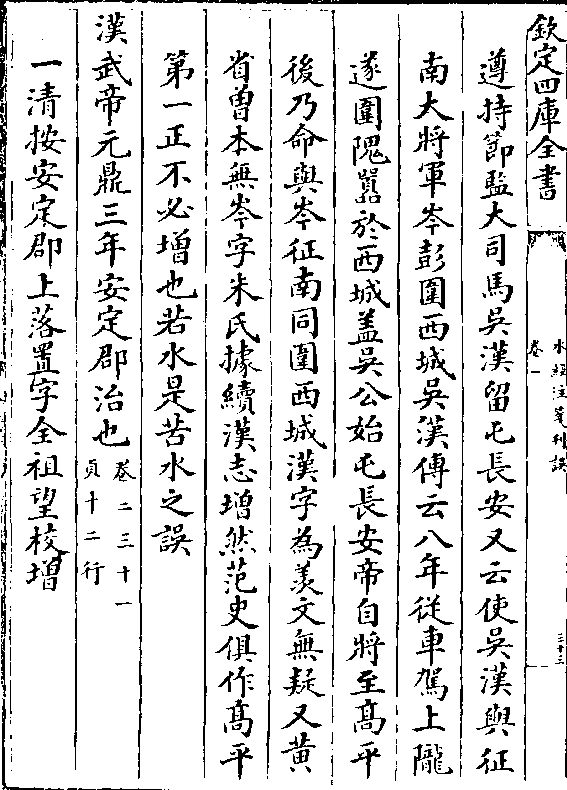 欽定四庫全書
水經注箋刊誤
卷一
三十三
遵持節監大司馬吳漢留屯長安又云使吳漢與征
南大將軍岑彭圍西城吳漢傳云八年從車駕上隴
遂圍隗囂於西城盖吳公始屯長安帝自將至髙平
後乃命與岑征南同圍西城漢字為羨文無疑又黄
省曽本無岑字朱氏據續漢志增然范史俱作髙平
第一正不必增也若水是苦水之誤
漢武帝元鼎三年安定郡治也卷二三十一
頁十二行
一清按安定郡上落置字全祖望校增